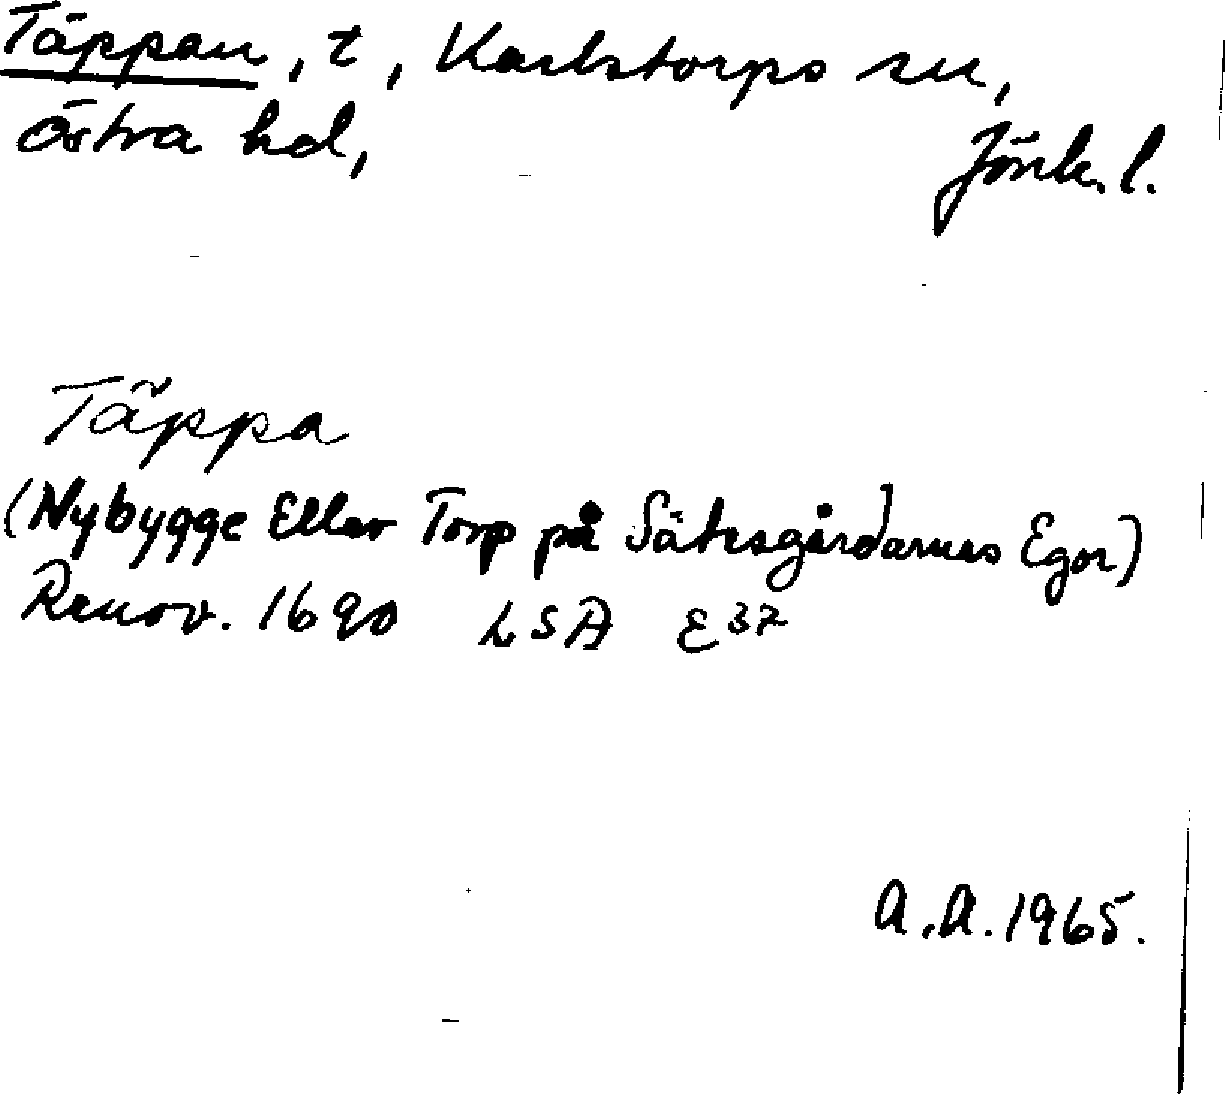 Täppan, t, Karlstorps sn,
Östra hd,
Jönk. l.
Täppa
(Nybygge Eller Torp på Sätesgårdarnes Egor)
Renov. 1690 LSA E 37
A.A. 1965.